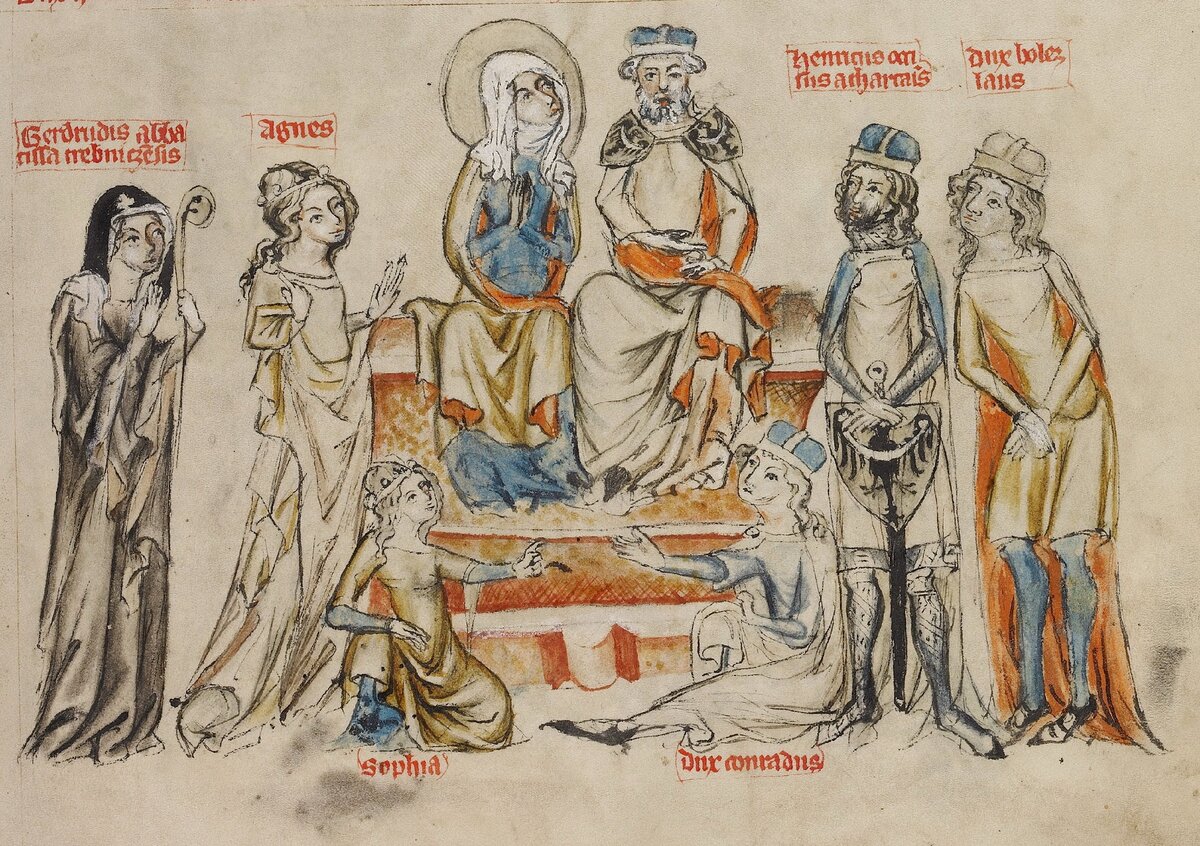 Gerdrudis abba
tissa trebniczēsis
Agnes
Henricus occi
sus a thartaris
dux bolez
laus
Sophia
dux conradus